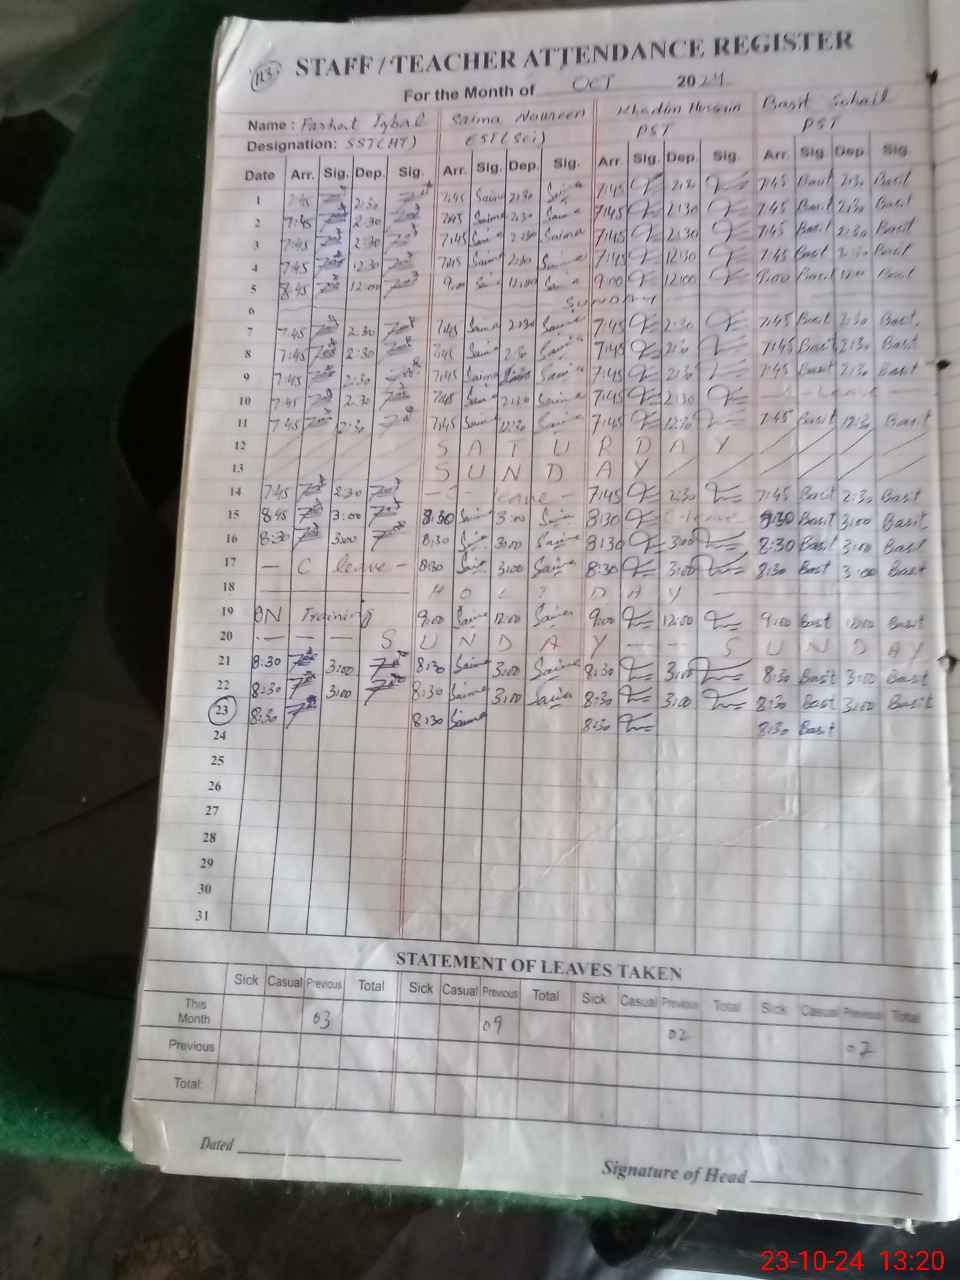 STAFF / TEACHER ATTENDANCE REGISTER
For the Month of OCT 2024
Name : Farhat Iqbal Saima Noureen Khadim Hussain Basit Suhail
Designation: SST(HT) EST(Sci) PST PST
Date Arr. Sig. Dep. Sig. Arr. Sig. Dep. Sig. Arr. Sig. Dep. Sig. Arr. Sig. Dep. Sig.
1 7:45 2:30 7:45 Saima 2:30 Saima 7:45 2:30 7:45 Basit 2:30 Basit
2 7:45 2:30 7:45 Saima 2:30 Saima 7:45 2:30 7:45 Basit 2:30 Basit
3 7:45 2:30 7:45 Saima 2:30 Saima 7:45 2:30 7:45 Basit 2:30 Basit
4 7:45 12:30 7:45 Saima Saima 7:45 12:30 7:45 Basit Basit
5 8:45 12:00 9:00 12:00 9:00 12:00 9:00 Basit 12:00 Basit
6 SUNDAY
7 7:45 2:30 7:45 Saima 2:30 Saima 7:45 2:30 7:45 Basit 2:30 Basit
8 7:45 2:30 7:45 Saima 2:30 Saima 7:45 2:30 7:45 Basit 2:30 Basit
9 7:45 2:30 7:45 Saima Saima 7:45 2:30 7:45 Basit 2:30 Basit
10 7:45 2:30 7:45 Saima 2:30 Saima 7:45 2:30 Leave
11 7:45 7:45 Saima 12:30 Saima 7:45 12:30 7:45 Basit 12:30 Basit
12 SATURDAY
13 SUNDAY
14 7:45 2:30 - C - leave - 7:45 2:30 7:45 Basit 2:30 Basit
15 8:45 3:00 8:30 Saima 3:00 Saima 8:30 C-leave 8:30 Basit 3:00 Basit
16 8:30 3:00 8:30 Saima 3:00 Saima 8:30 3:00 8:30 Basit 3:00 Basit
17 — C leave - 8:30 Saima 3:00 Saima 8:30 3:00 8:30 Basit 3:00 Basit
18 HOLIDAY
19 ON Training 9:00 Saima 12:00 Saima 9:00 12:00 9:00 Basit 12:00 Basit
20 - — - — SUNDAY — - SUNDAY
21 8:30 3:00 8:30 Saima 3:00 Saima 8:30 3:00 8:30 Basit 3:00 Basit
22 8:30 3:00 8:30 Saima 3:00 Saima 8:30 3:00 8:30 Basit 3:00 Basit
23 8:30 8:30 Saima 8:30 8:30 Basit
24
25
26
27
28
29
30
31
STATEMENT OF LEAVES TAKEN
Sick Casual Previous Total Sick Casual Previous Total Sick Casual Previous Total Sick Casual Previous Total
This Month 03 09 02 02
Previous
Total:
Dated
Signature of Head
23-10-24 13:20